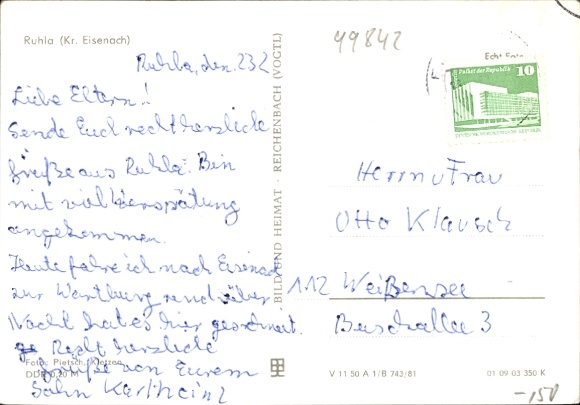 Ruhla (Kr. Eisenach)
49842
Echt Foto
Palast der Republik 10
Ruhla, den 23.2
Liebe Eltern!
Sende Euch recht herzliche
Grüße aus Ruhla. Bin
mit viel Verspätung
angekommen.
Heute fahre ich nach Eisenach
zur Wartburg und über
Nacht hat es hier geschneit.
Recht herzliche
Grüße von Eurem
Sohn Karlheinz
Foto: Pietsch, Kletzen
DDR 0,20 M
BILD UND HEIMAT · REICHENBACH (VOGTL)
Herrn u Frau
Otto Klausch
112 Weißensee
3
V 11 50 A 1/B 743/81
01 09 03 350 K
-150